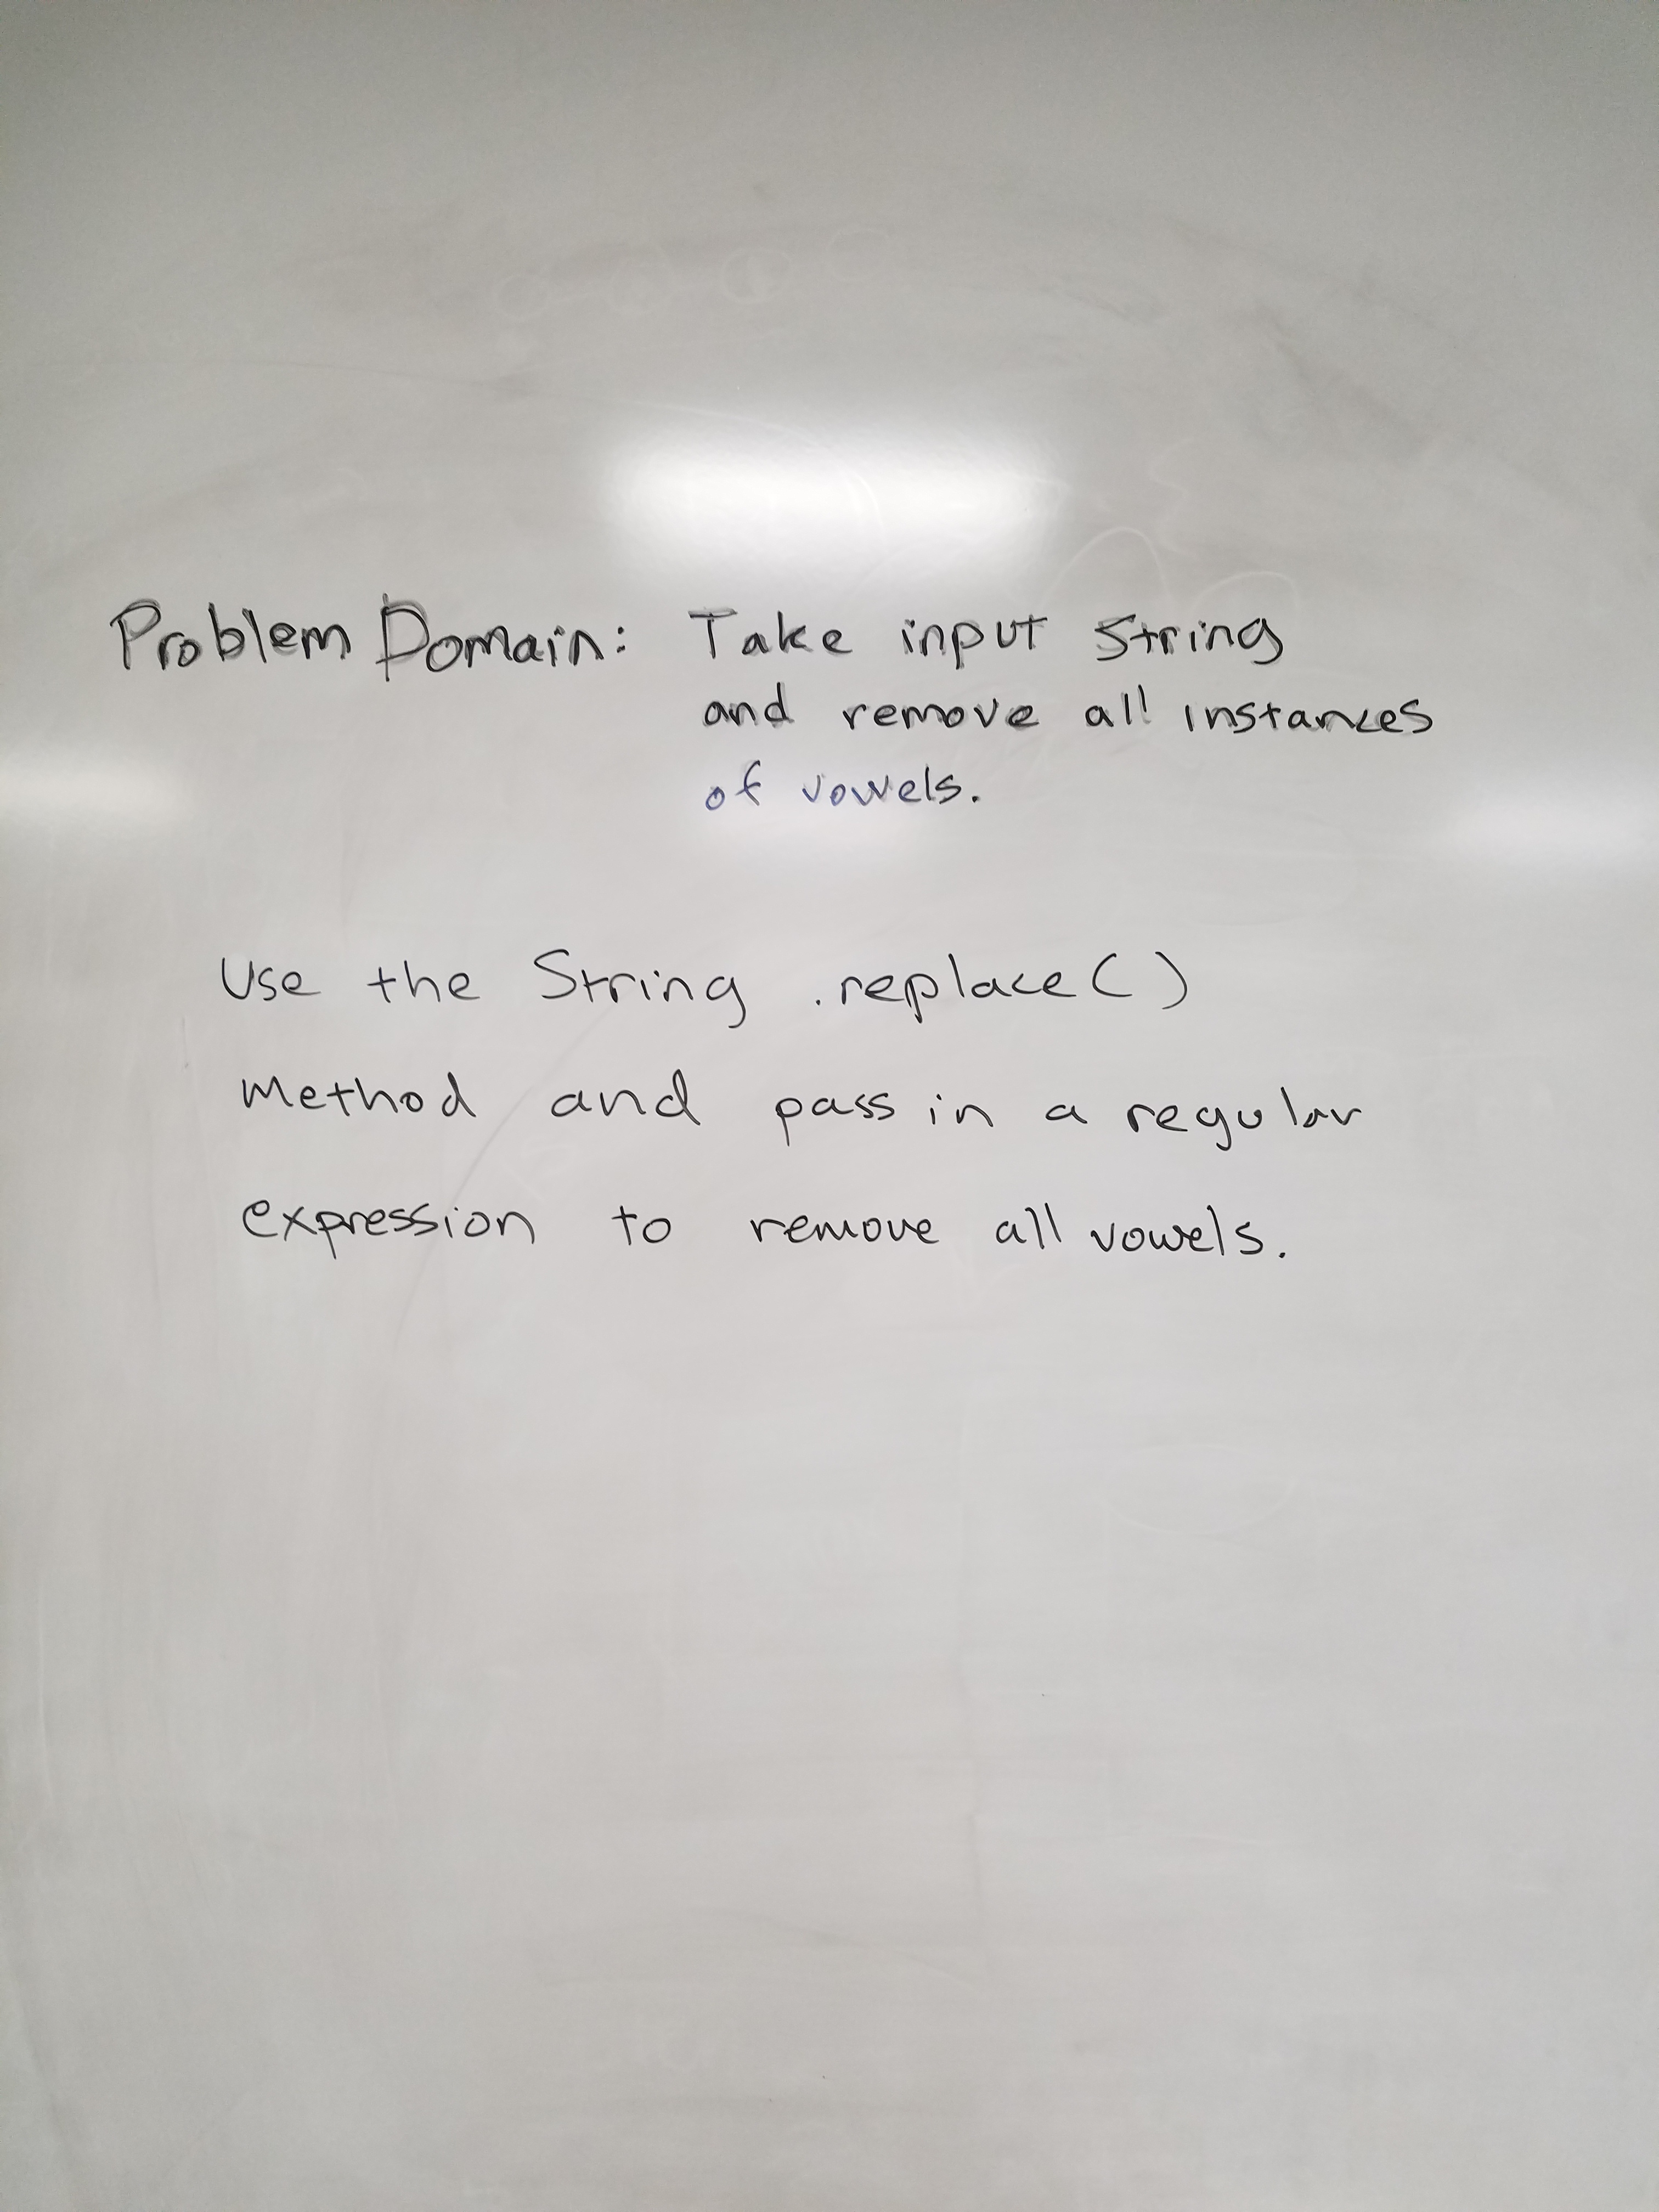 Problem Domain: Take input String
and remove all instances
of vowels.
Use the String .replace()
method and pass in a regular
expression to remove all vowels.